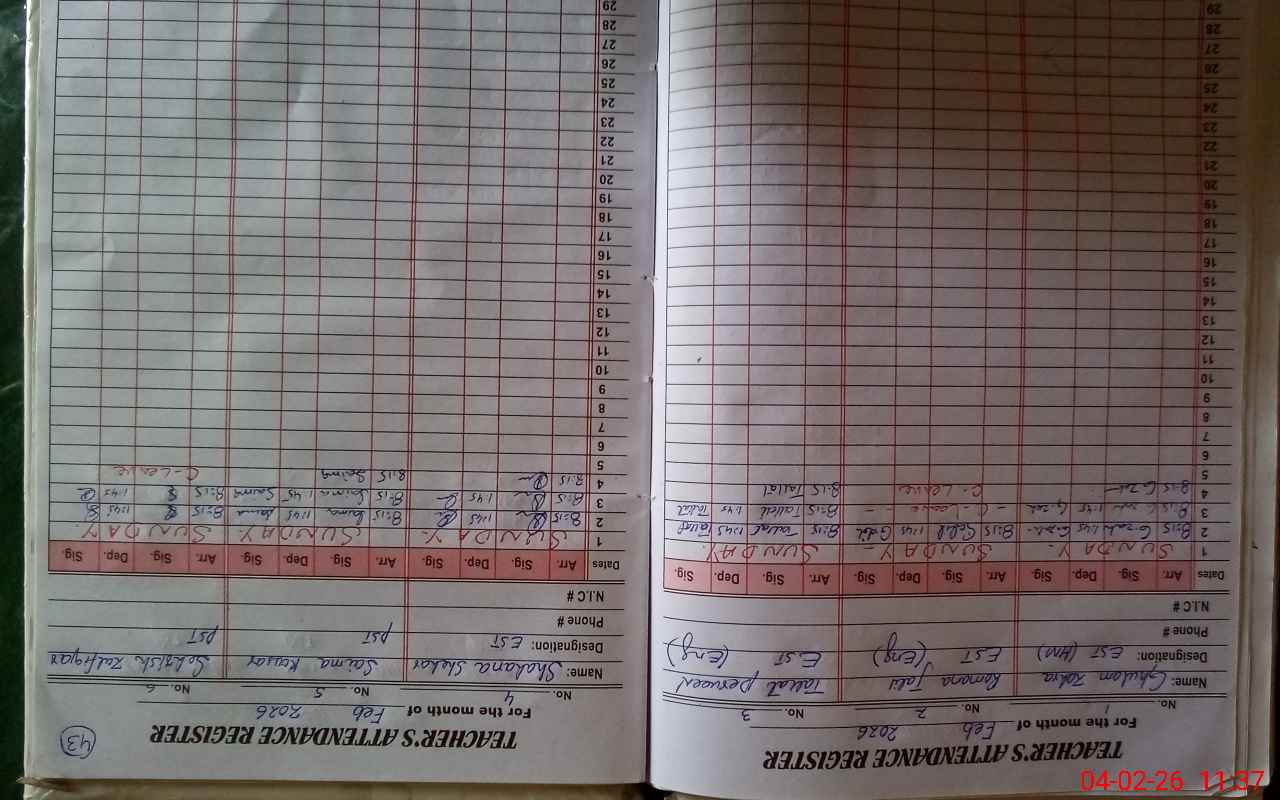 TEACHER'S ATTENDANCE REGISTER
For the month of Feb 2026
No. 1 No. 2 No. 3
Name: Ghulam Zahra Romana Tallat Perween
Designation: EST (Hm) EST (Eng) EST (Eng)
Phone #
N.I.C #
Dates Arr. Sig. Dep. Sig. Arr. Sig. Dep. Sig. Arr. Sig. Dep. Sig.
1 SUNDAY. SUNDAY - SUNDAY.
2 8:15 1:45 8:15 1:45 8:15 Tallat 1:45 Tallat
3 8:15 1:45 - C-Leave - - 8:15 Tallat 1:45 Tallat
4 8:15 C-Leave 8:15 Tallat
5
6
7
8
9
10
11
12
13
14
15
16
17
18
19
20
21
22
23
24
25
26
27
28
29
TEACHER'S ATTENDANCE REGISTER
43
For the month of Feb 2026
No. 4 No. 5 No. 6
Name: Shahana Saima Kausar Zulfiqar
Designation: EST PST PST
Phone #
N.I.C #
Dates Arr. Sig. Dep. Sig. Arr. Sig. Dep. Sig. Arr. Sig. Dep. Sig.
1 SUNDAY - SUNDAY SUNDAY
2 8:15 1:45 8:15 Saima 1:45 Saima 8:15 1:45
3 8:15 1:45 8:15 Saima 1:45 Saima 8:15 1:45
4 8:15 8:15 Saima C-Leave
5
6
7
8
9
10
11
12
13
14
15
16
17
18
19
20
21
22
23
24
25
26
27
28
29
04-02-26 11:37